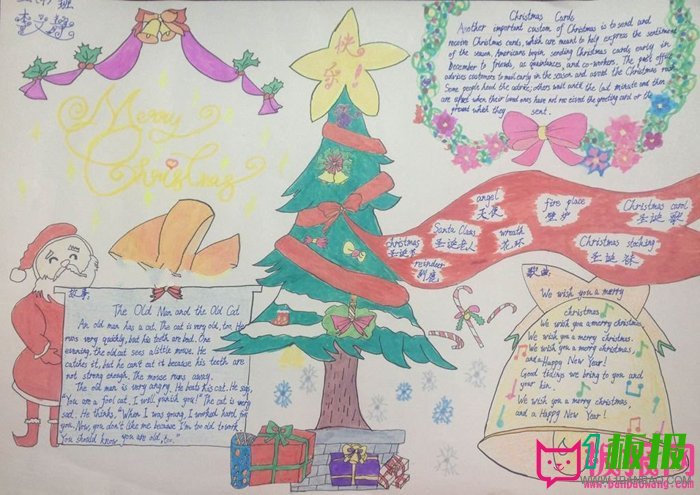 Merry
Christmas
快
乐!
Christmas Cards
Another important custom of Christmas is to send and
receive Christmas cards, which are meant to help express the sentiment
of the season. Americans begin sending Christmas cards early in
December to friends, acquaintances, and co-workers. The post office
advises customers to mail early in the season and avoid the Christmas rush.
Some people heed the advice; others wait until the last minute and then
are upset when their loved ones have not received the greeting card or the
present which they sent.
angel
天使
fire place
壁炉
Christmas carol
圣诞歌
Santa Claus
圣诞老人
wreath
花环
Christmas stocking
圣诞袜
christmas
圣诞节
reindeer
驯鹿
故事:
The Old Man and the Old Cat
An old man has a cat. The cat is very old, too. He
runs very quickly, but his teeth are bad. One
evening, the old cat sees a little mouse. He
catches it, but he can't eat it because his teeth are
not strong enough. The mouse runs away.
The old man is very angry. He beats his cat. He says,
"You are a fool cat. I will punish you!" The cat is very
sad. He thinks, "When I was young, I worked hard for
you. Now, you don't like me because I'm too old to work.
You should know, you are old, too."
歌曲:
We wish you a merry
christmas
We wish you a merry christmas.
We wish you a merry christmas
and a Happy New Year!
Good tidings we bring to you and
your kin.
We wish you a merry christmas
and a Happy New Year!
板报网